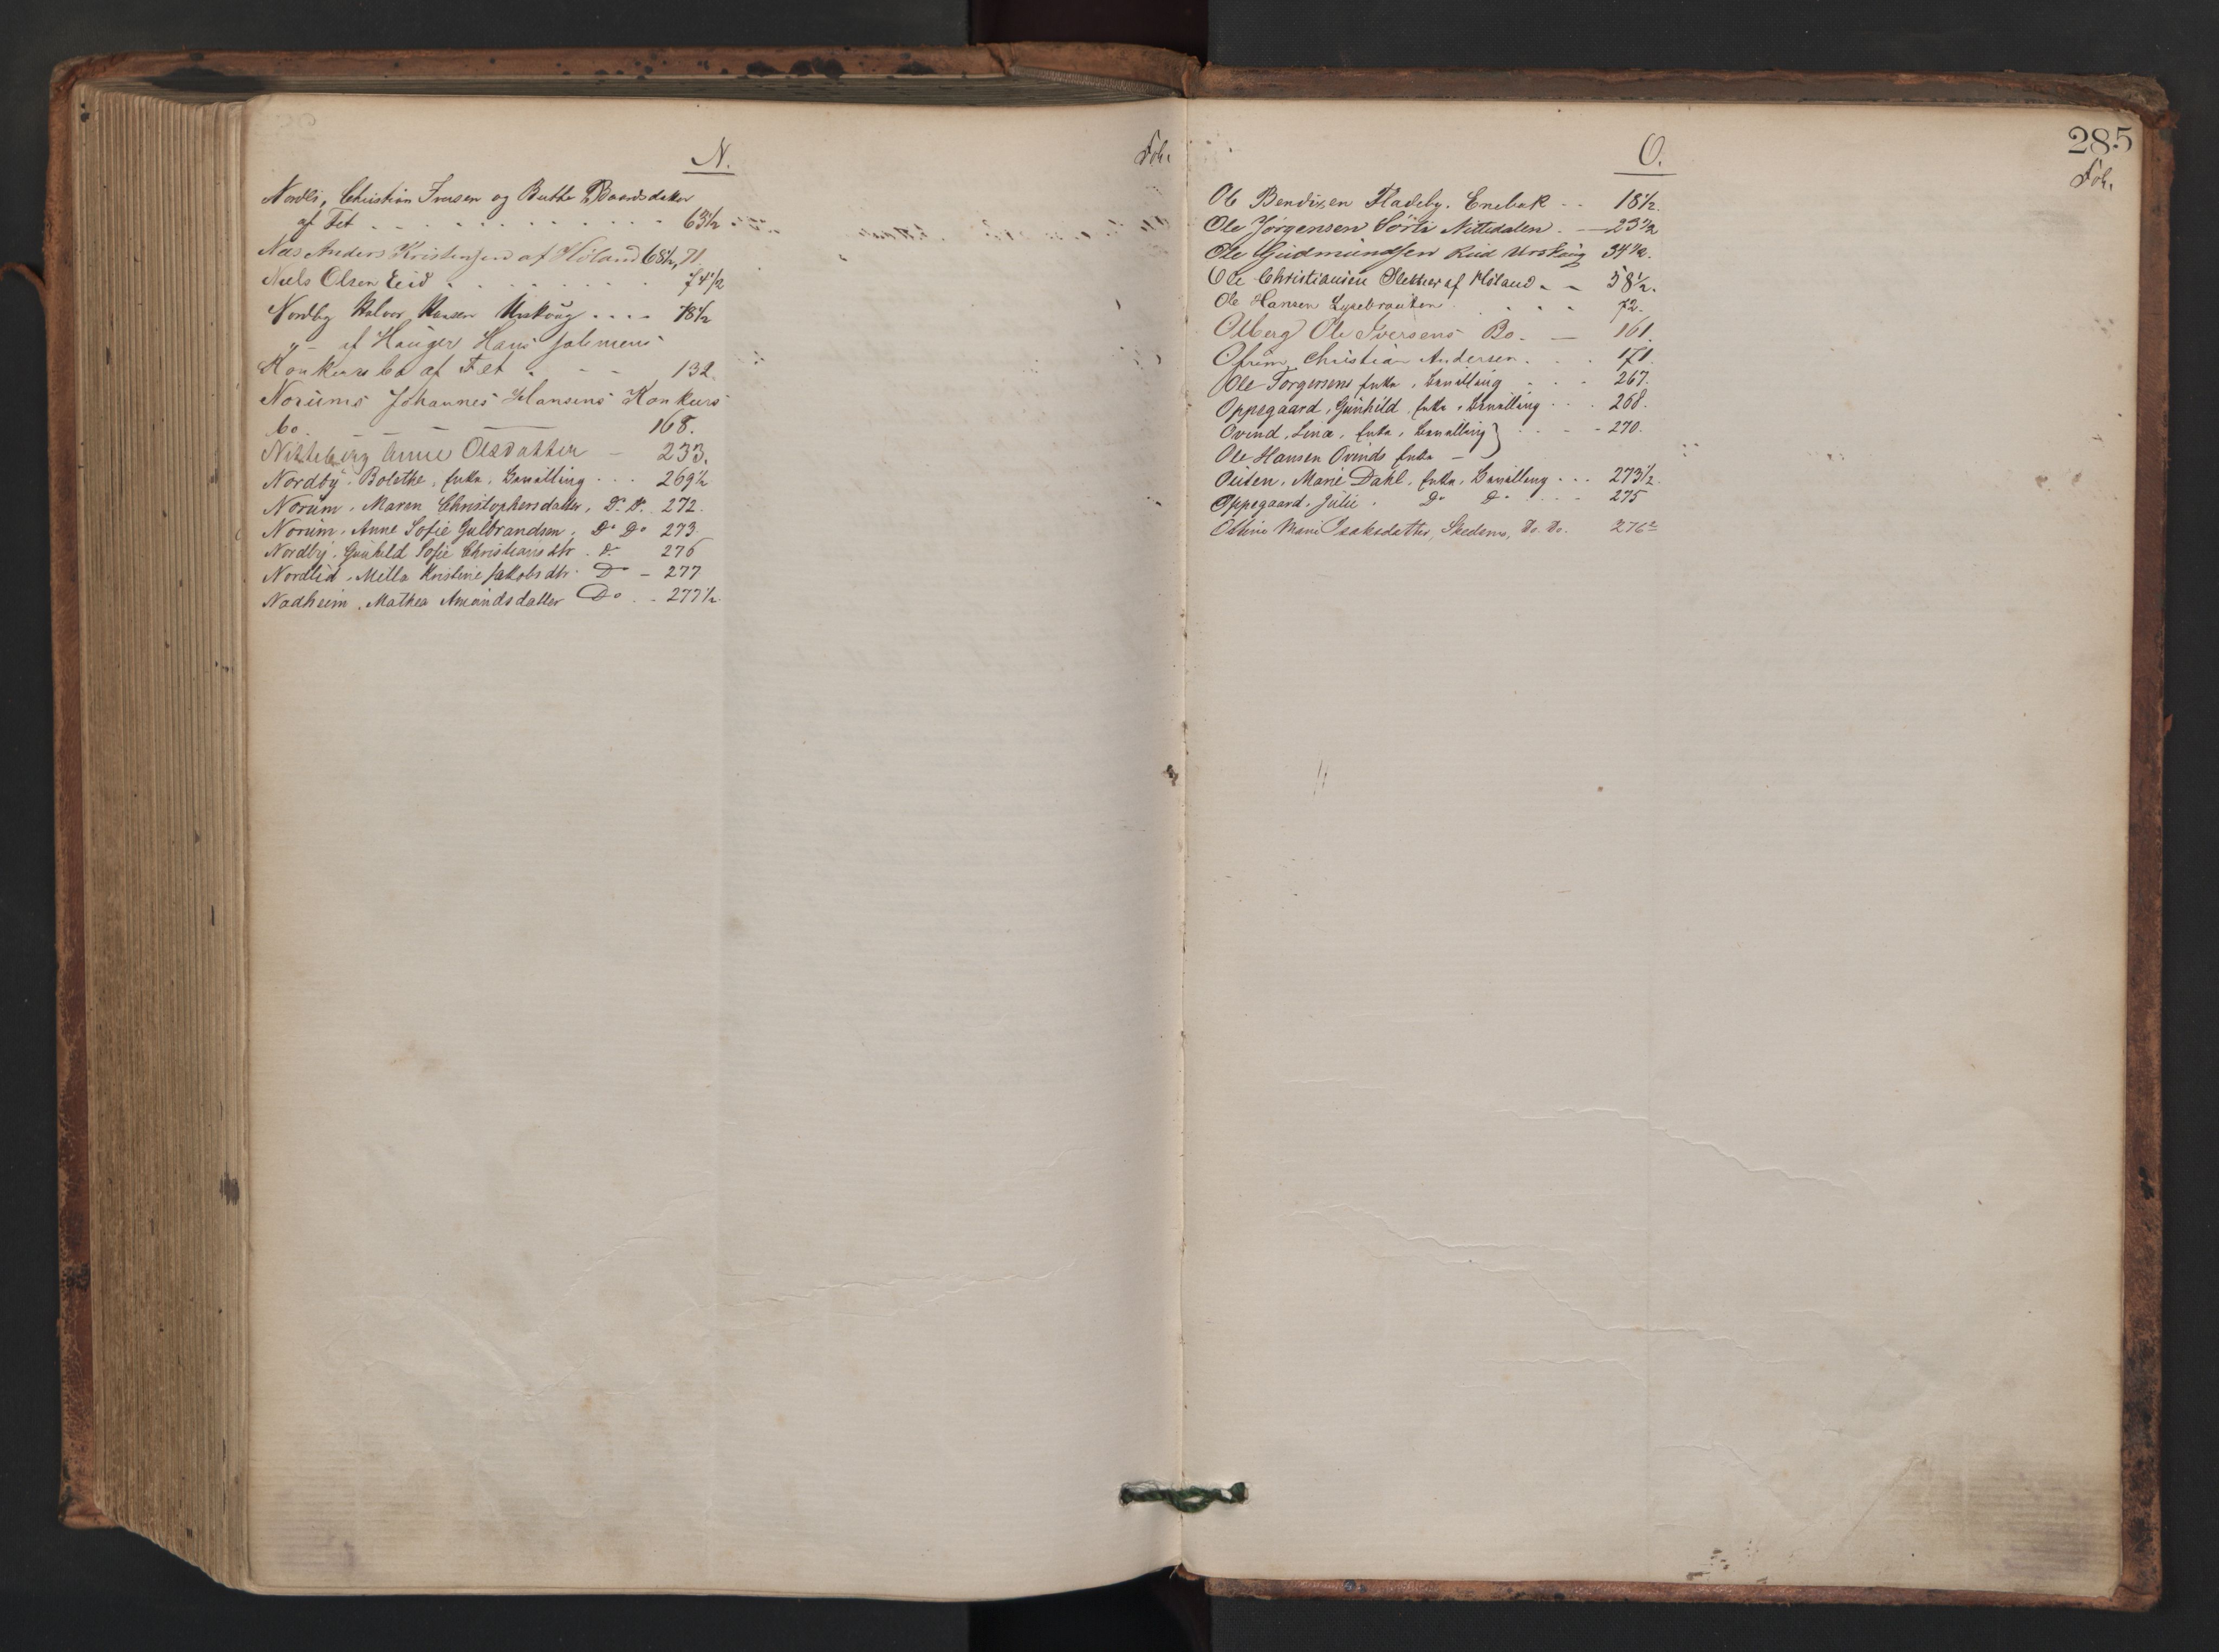 N.
Fol.
Nordli, Christian Iversen og Berthe Baardsdatter
af Fet 63½
Næs Anders Kristensen af Höland 68½, 71.
Niels Olsen Eid 74½
Nordby Halvor Hansen Urskoug 78½
"– af Hauger Hans Jalmers
Konkursbo af Fet 132.
Norums Johannes Hansens Konkurs
bo. 168.
Nitteberg Anne Olsdatter – 233.
Nordby, Bolethe, 269½
Norum, Maren Christophersdatter, Do Do 272.
Norum, Anne Sofie Gulbrandsen, Do Do 273
Nordby, Gunhild Sofie Christiansdtr. Do 276
Nordlid, Milla Kristine Jakobsdtr. Do – 277
Nadheim, Mathea Amundsdatter Do 277½
285
O.
Fol.
Ole Bendixen Fladeby. Enebak 18½.
Ole Jörgensen Sörli Nittedalen. 23½
Ole Gudmundsen Rud Urskoug 34½.
Ole Christiansen Sletner af Höland 58½.
Ole Hansen Lysebraaten 72.
Olberg Ole Iversens Bo. – 161.
Ofrum Christian Andersen 171.
Ole Torgersens 267.
Oppegaard, Gunhild, 268.
Ovind, Lina, 270.
Ole Hansen Ovinds
Outen, Marie Dahl, 273½.
Oppegaard, Julie. Do Do 275
Oline Marie Isaksdatter, Skedsmo, Do. Do. 276